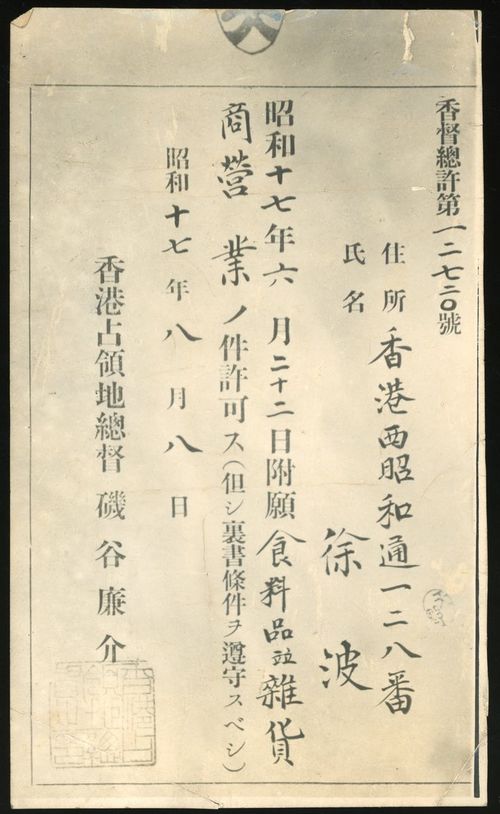 香督總許第一二七二〇號
住所 香港西昭和通一二八番
氏名 徐波
昭和十七年六月二十二日附願食料品並雜貨
商營業ノ件許可ス(但シ裏書條件ヲ遵守スベシ)
昭和十七年八月八日
香港占領地總督 磯谷廉介